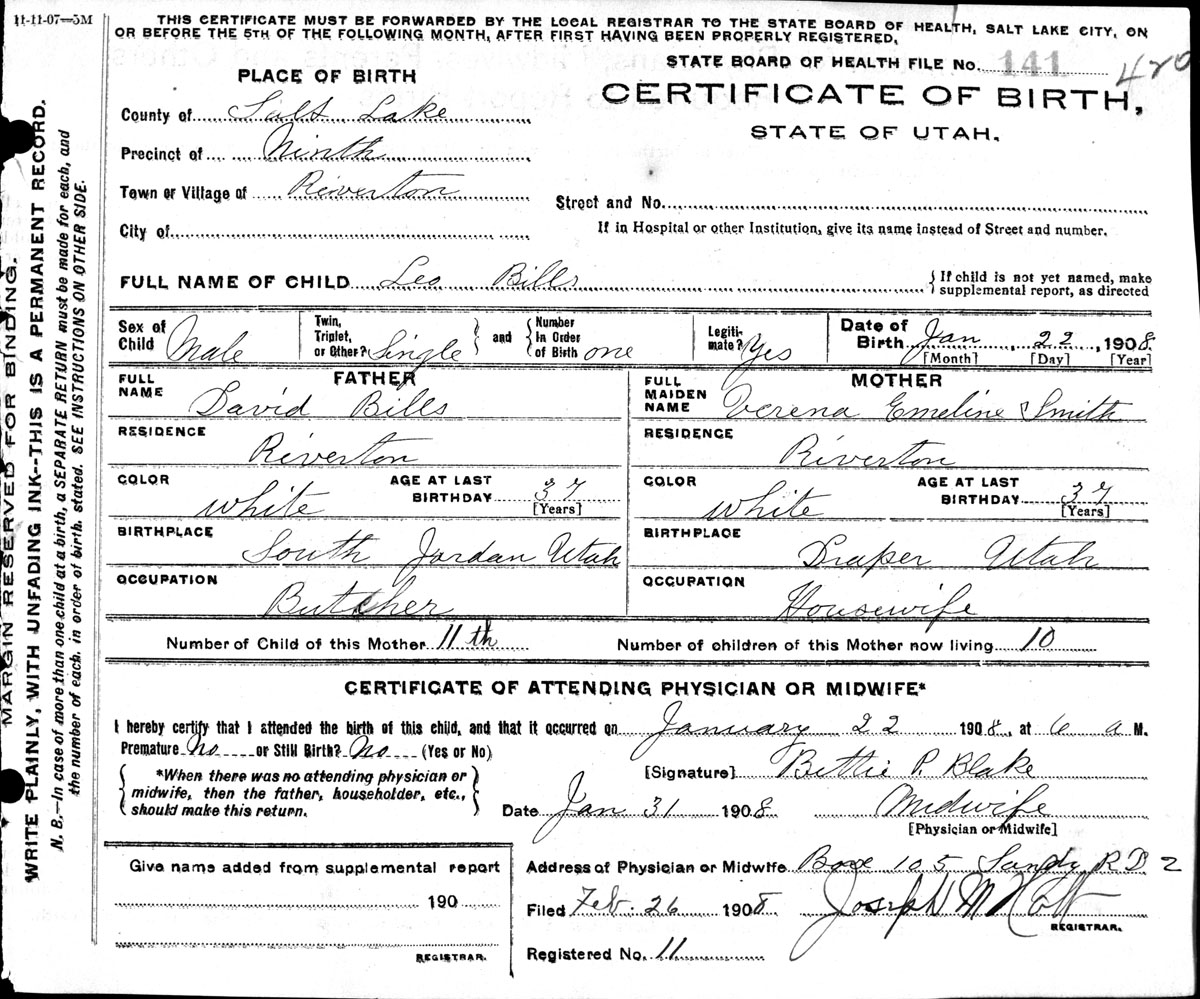 11-11-07—5M
THIS CERTIFICATE MUST BE FORWARDED BY THE LOCAL REGISTRAR TO THE STATE BOARD OF HEALTH, SALT LAKE CITY, ON
OR BEFORE THE 5TH OF THE FOLLOWING MONTH, AFTER FIRST HAVING BEEN PROPERLY REGISTERED.
STATE BOARD OF HEALTH FILE No. 141
420
CERTIFICATE OF BIRTH,
STATE OF UTAH.
PLACE OF BIRTH
County of Salt Lake
Precinct of Ninth
Town or Village of Riverton
City of
Street and No.
If in Hospital or other Institution, give its name instead of Street and number.
FULL NAME OF CHILD Leo Bills
If child is not yet named, make
supplemental report, as directed
Sex of Child Male
Twin, Triplet, or Other? Single
and
Number In Order of Birth one
Legitimate? Yes
Date of Birth Jan 22, 1908
[Month] [Day] [Year]
FATHER
FULL NAME David Bills
RESIDENCE Riverton
COLOR white
AGE AT LAST BIRTHDAY 37
[Years]
BIRTHPLACE South Jordan Utah
OCCUPATION Butcher
MOTHER
FULL MAIDEN NAME Verena Emeline Smith
RESIDENCE Riverton
COLOR white
AGE AT LAST BIRTHDAY 37
[Years]
BIRTHPLACE Draper Utah
OCCUPATION Housewife
Number of Child of this Mother 11th
Number of children of this Mother now living 10
CERTIFICATE OF ATTENDING PHYSICIAN OR MIDWIFE*
I hereby certify that I attended the birth of this child, and that it occurred on January 22 1908, at 6 a M.
Premature No or Still Birth? No (Yes or No)
*When there was no attending physician or
midwife, then the father, householder, etc.,
should make this return.
[Signature] Bettie P. Blake
Date Jan 31 1908
Midwife
[Physician or Midwife]
Give name added from supplemental report
190
REGISTRAR.
Address of Physician or Midwife Box 105 Sandy R.D. 2
Filed Feb. 26 1908
Joseph M
REGISTRAR.
Registered No. 11
MARGIN RESERVED FOR BINDING.
WRITE PLAINLY, WITH UNFADING INK--THIS IS A PERMANENT RECORD.
N. B.—In case of more than one child at a birth, a SEPARATE RETURN must be made for each, and
the number of each, in order of birth, stated. SEE INSTRUCTIONS ON OTHER SIDE.